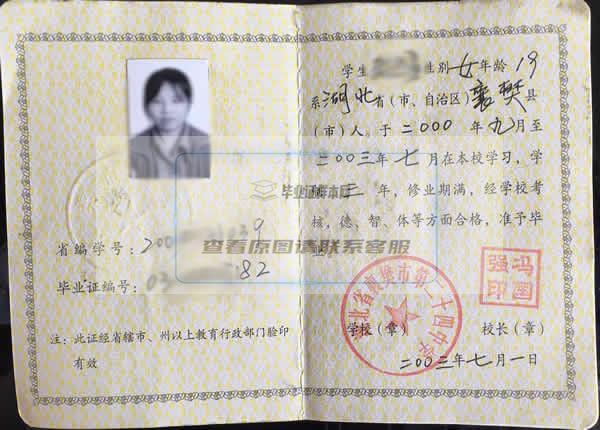 省编学号：200 039
毕业证编号：03 82
注：此证经省辖市、州以上教育行政部门验印
有效
学生 性别 女 年龄 19
系 湖北 省（市、自治区）襄樊 县
（市）人。于二000 年 九 月至
二00三年 七 月在本校学习，学
制 三 年，修业期满，经学校考
核，德、智、体等方面合格，准予毕
业
毕业证样本库
查看原图请联系客服
湖北省襄樊市第二十四中学
强印
学校（章） 校长（章）
二00三年七月一日